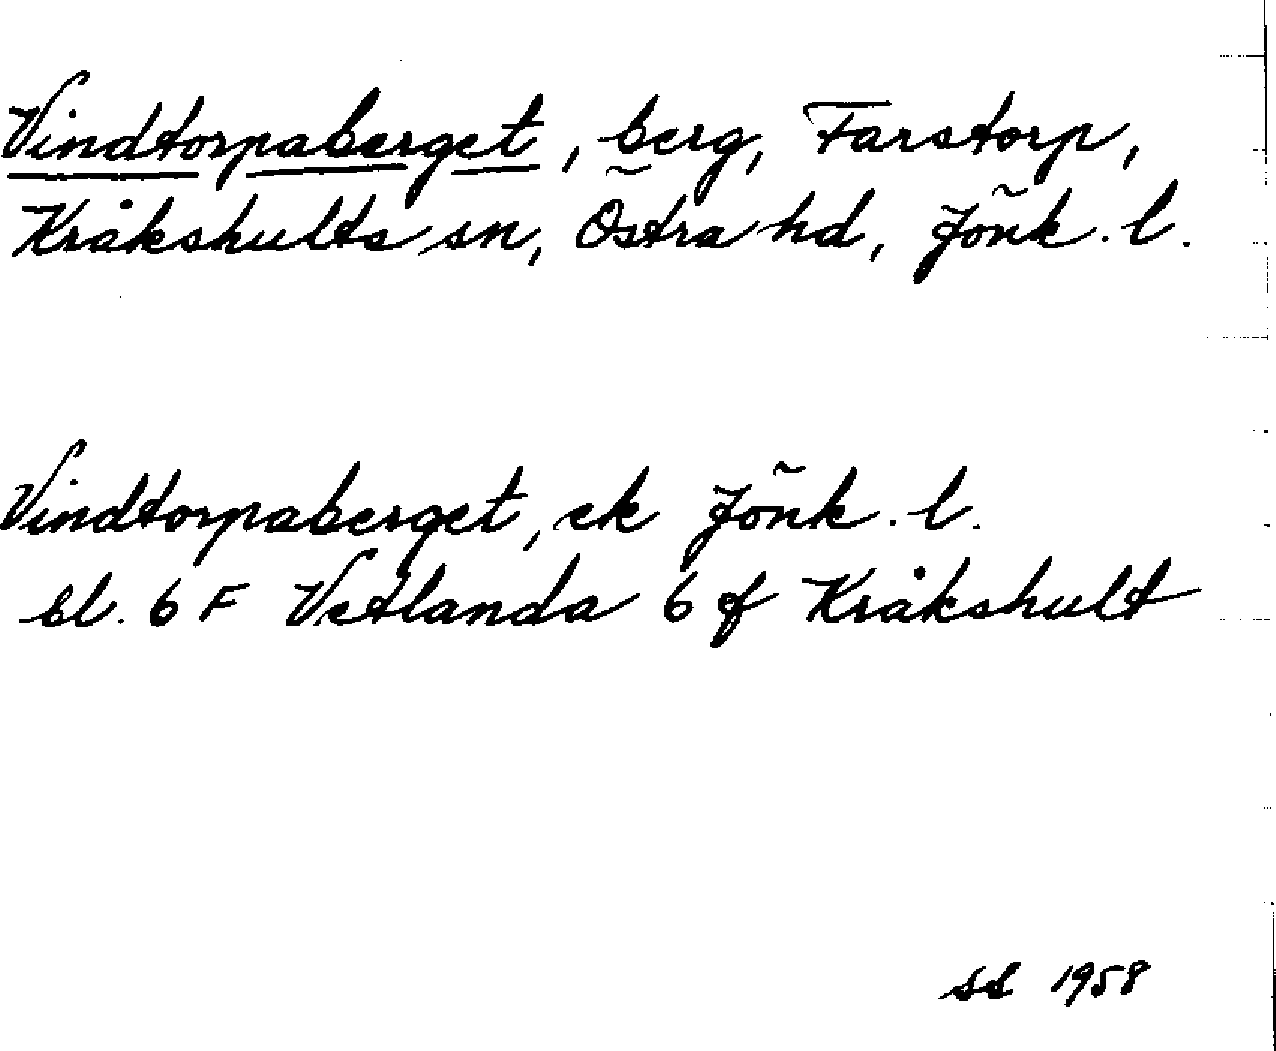 Vindtorpaberget, berg, Farstorp,
Kråkshults sn, Östra hd, Jönk. l.
Vindtorpaberget, ek Jönk. l.
bl. 6 F Vetlanda 6 f Kråkshult
1958